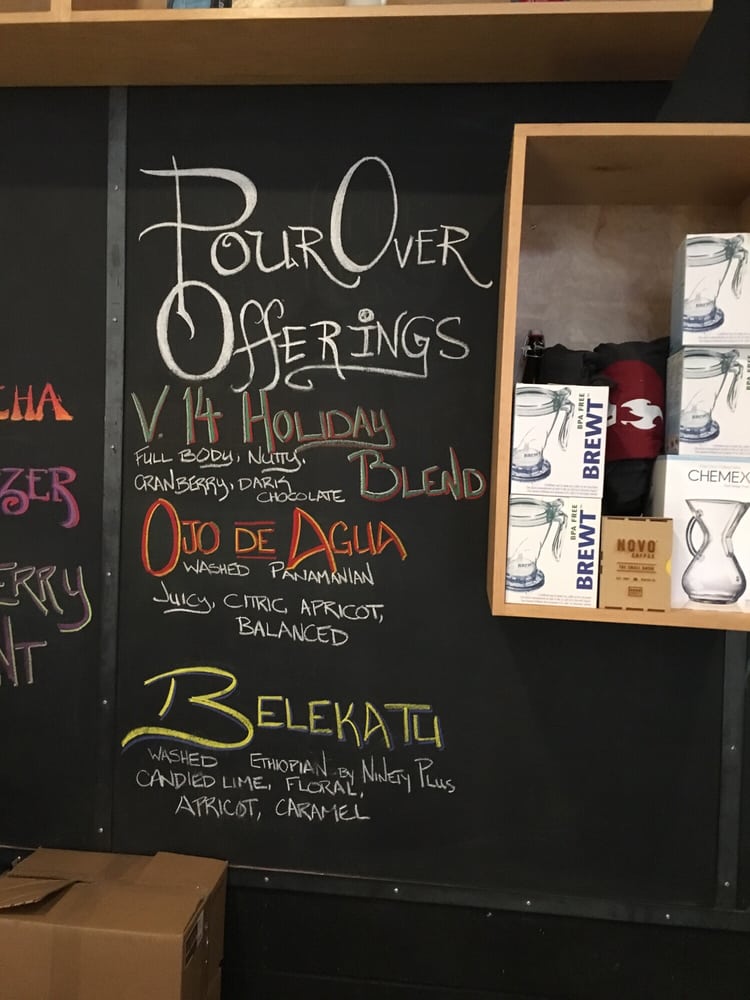 Pour Over
Offerings
V. 14 Holiday
Blend
Full Body, Nutty,
Cranberry, Dark
Chocolate
Ojo de Agua
Washed Panamanian
Juicy, Citric Apricot,
Balanced
Belekatu
Washed Ethiopian by Ninety Plus
Candied Lime, Floral,
Apricot, Caramel
CHA
ZER
ERRY
NT
BPA FREE
BREWT
BPA FREE
BREWT
NOVO
COFFEE
CHEMEX